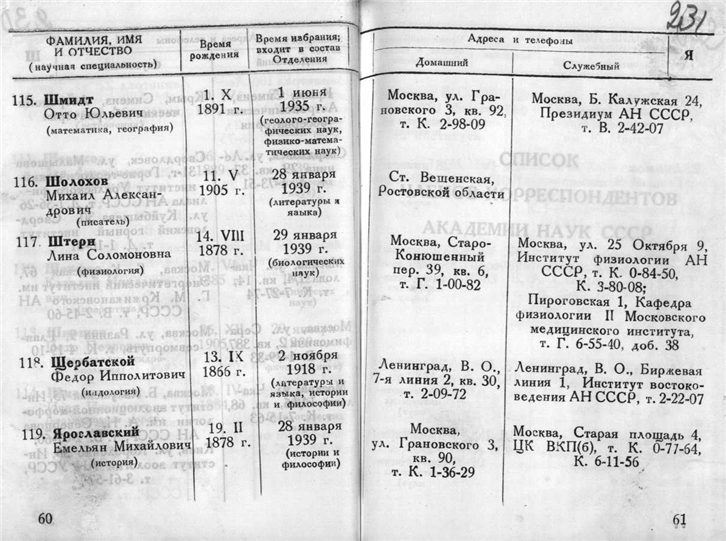 231
ФАМИЛИЯ, ИМЯ
И ОТЧЕСТВО
(научная специальность)
Время
рождения
Время избрания;
входит в состав
Отделения
115. Шмидт
Отто Юльевич
(математика, география)
1. X
1891 г.
1 июня
1935 г.
(геолого-геогра-
фических наук,
физико-матема-
тических наук)
116. Шолохов
Михаил Алексан-
дрович
(писатель)
11. V
1905 г.
28 января
1939 г.
(литературы и
языка)
117. Штерн
Лина Соломоновна
(физиология)
14. VIII
1878 г.
29 января
1939 г.
(биологических
наук)
118. Щербатской
Федор Ипполитович
(индология)
13. IX
1866 г.
2 ноября
1918 г.
(литературы и
языка, истории
и философии)
119. Ярославский
Емельян Михайлович
(история)
19. II
1878 г.
28 января
1939 г.
(истории и
философии)
60
Адреса и телефоны
Я
Домашний
Служебный
Москва, ул. Гра-
новского 3, кв. 92,
т. К. 2-98-09
Москва, Б. Калужская 24,
Президиум АН СССР,
т. В. 2-42-07
Ст. Вешенская,
Ростовской области
Москва, Старо-
Конюшенный
пер. 39, кв. 6,
т. Г. 1-00-82
Москва, ул. 25 Октября 9,
Институт физиологии АН
СССР, т. К. 0-84-50,
К. 3-80-08;
Пироговская 1, Кафедра
физиологии II Московского
медицинского института,
т. Г. 6-55-40, доб. 38
Ленинград, В. О.,
7-я линия 2, кв. 30,
т. 2-09-72
Ленинград, В. О., Биржевая
линия 1, Институт востоко-
ведения АН СССР, т. 2-22-07
Москва,
ул. Грановского 3,
кв. 90,
т. К. 1-36-29
Москва, Старая площадь 4,
ЦК ВКП(б), т. К. 0-77-64,
К. 6-11-56
61